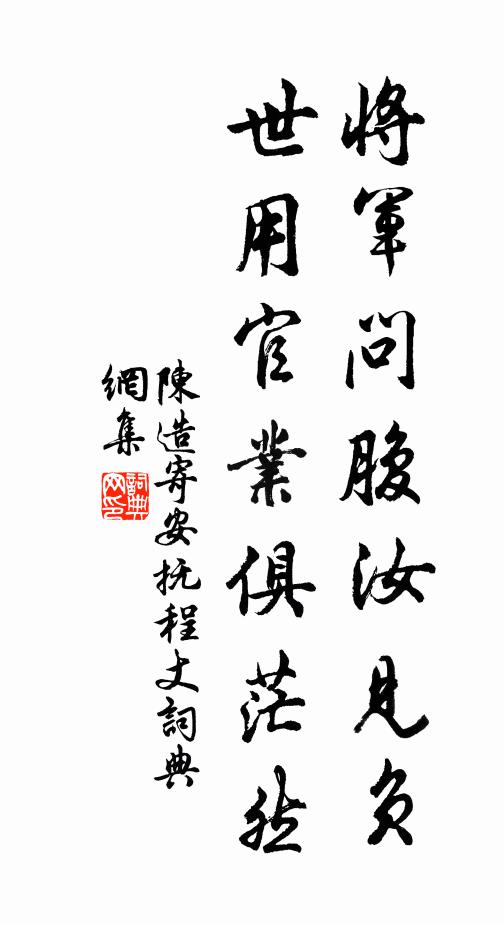 將軍問腹汝見負
世用官業俱茫然
陳造寄安抚程丈詞典
網集
詞典网印